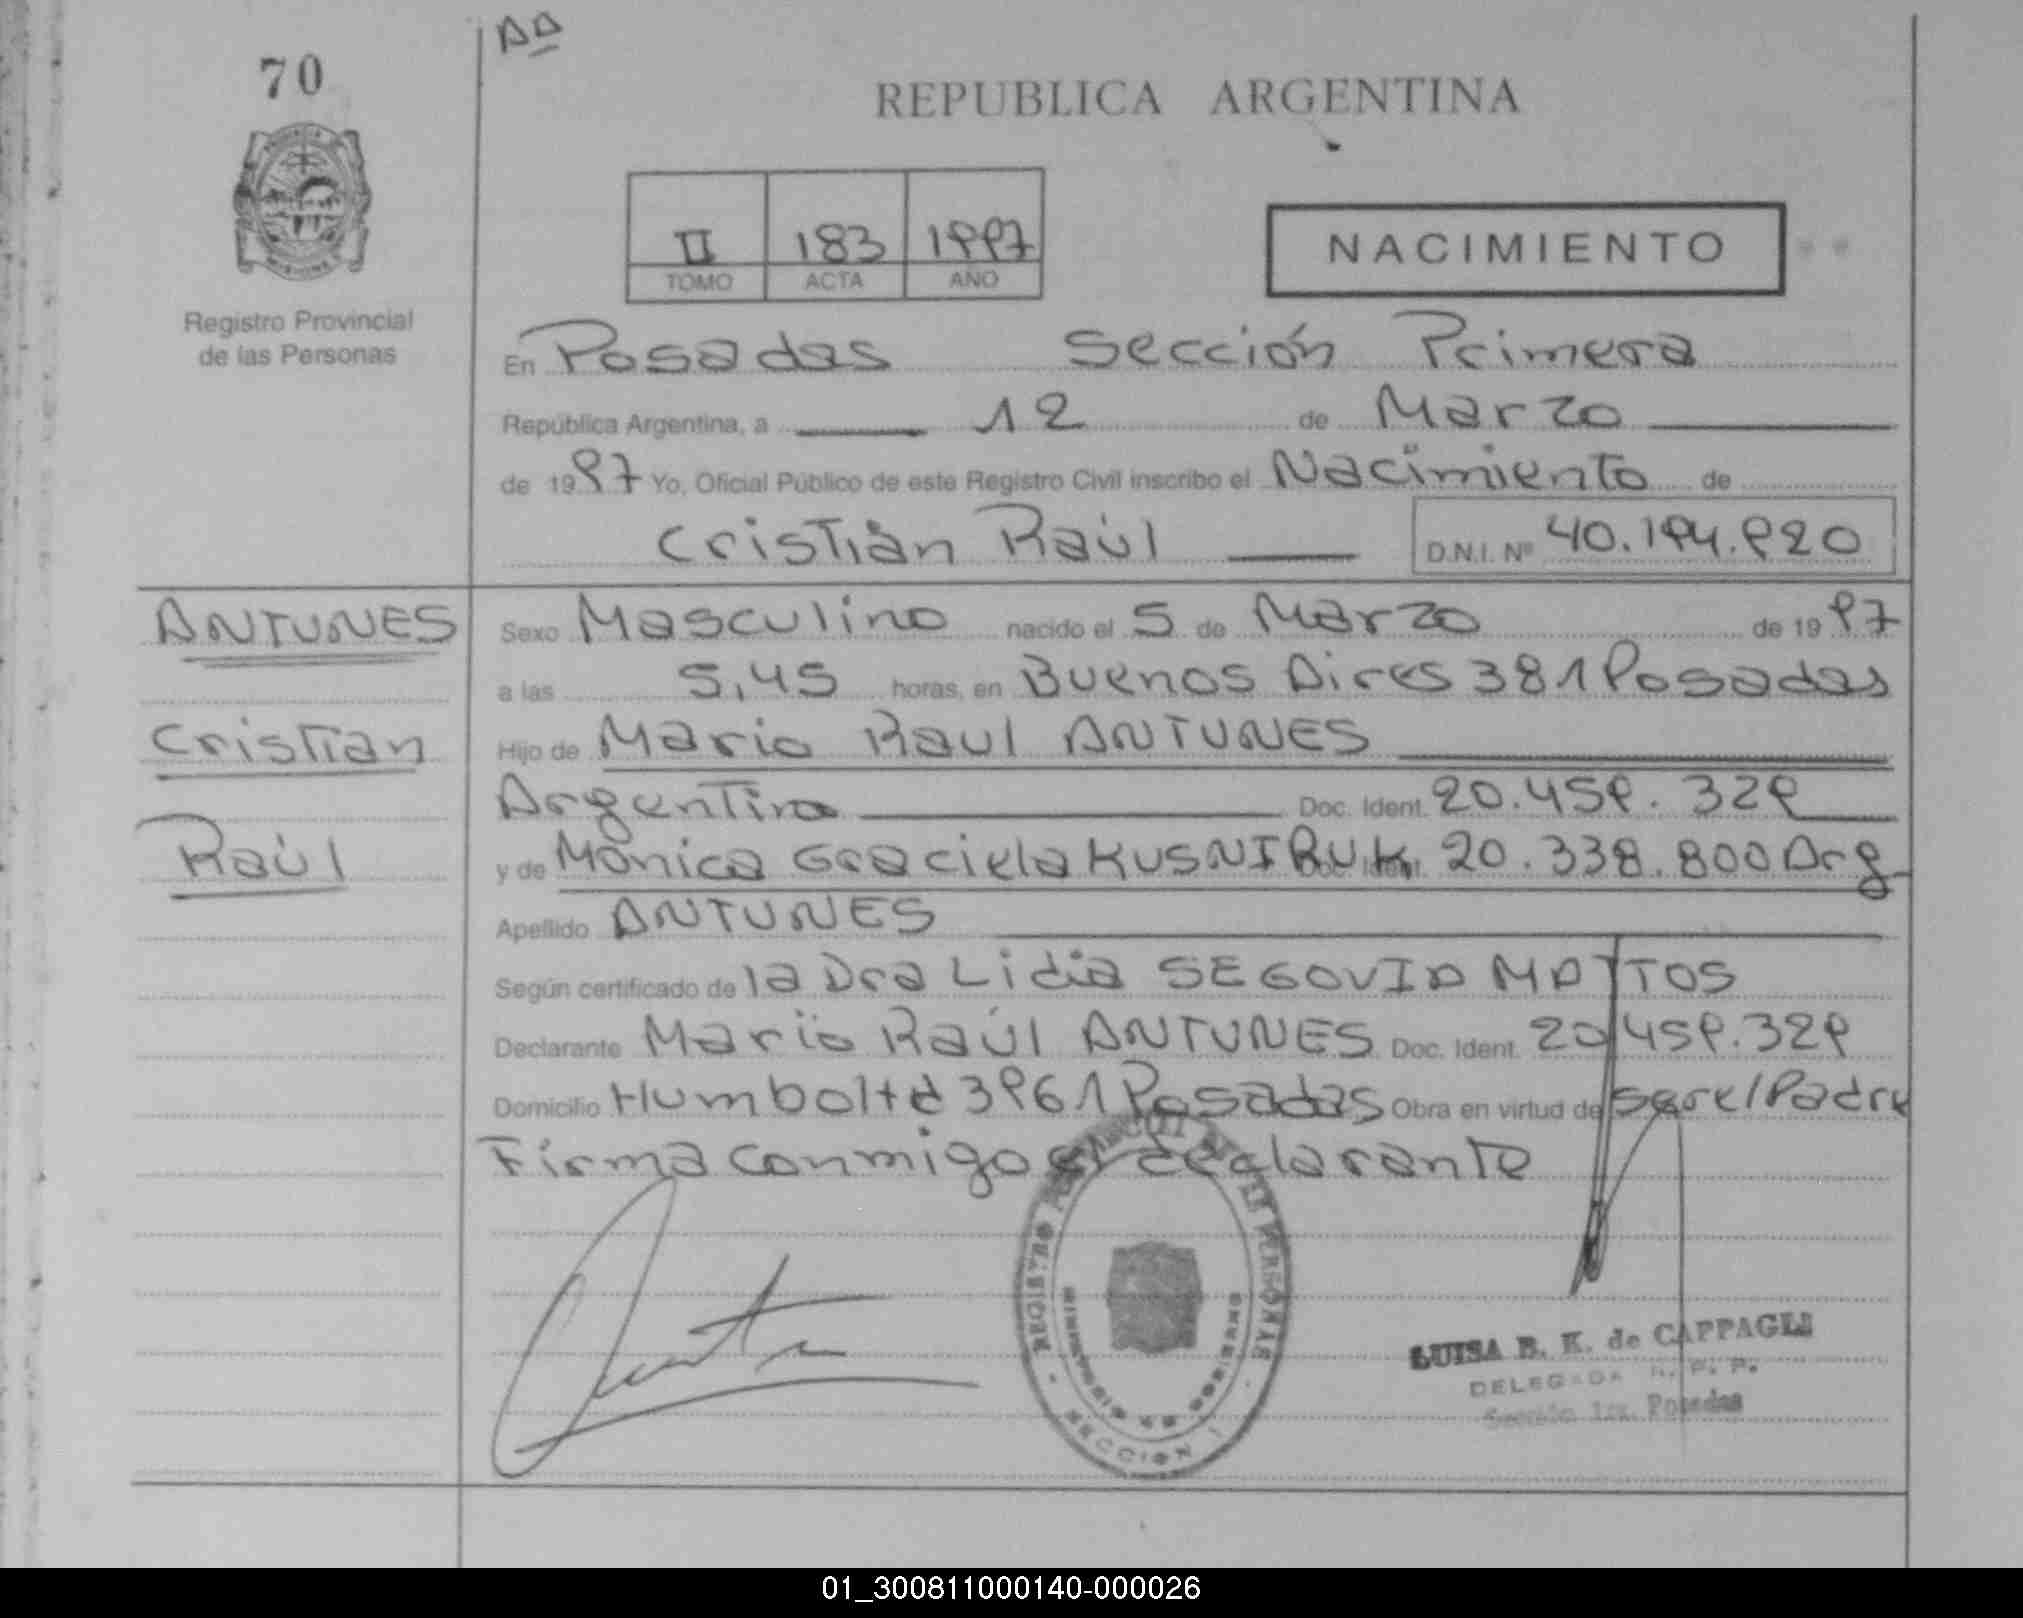 70
REPUBLICA ARGENTINA
II 183 1997
TOMO ACTA AÑO
NACIMIENTO
Registro Provincial
de las Personas
En Posadas Sección Primera
República Argentina, a 12 de Marzo
de 1997 Yo, Oficial Público de este Registro Civil inscribo el Nacimiento de
Cristian Raúl D.N.I. Nº 40.194.920
ANTUNES
Cristian
Raúl
Sexo Masculino nacido el 5 de Marzo de 1997
a las 5,45 horas, en Buenos Aires 381 Posadas
Hijo de Mario Raul ANTUNES
Argentino Doc. Ident. 20.459.329
y de Mónica Graciela KUSNIRUK Doc. Ident. 20.338.800 Arg
Apellido ANTUNES
Según certificado de la Dra Lidia SEGOVIA MATTOS
Declarante Mario Raúl ANTUNES Doc. Ident. 20.459.329
Domicilio Humboltd 3961 Posadas Obra en virtud de ser el Padre
Firma conmigo el declarante
REGISTRO DE LAS PERSONAS
MINISTERIO DE GOBIERNO
SECCION 1
LUISA B. K. de CAPPAGLI
DELEGADA R. P. P.
Sección 1ra. Posadas
01_300811000140-000026